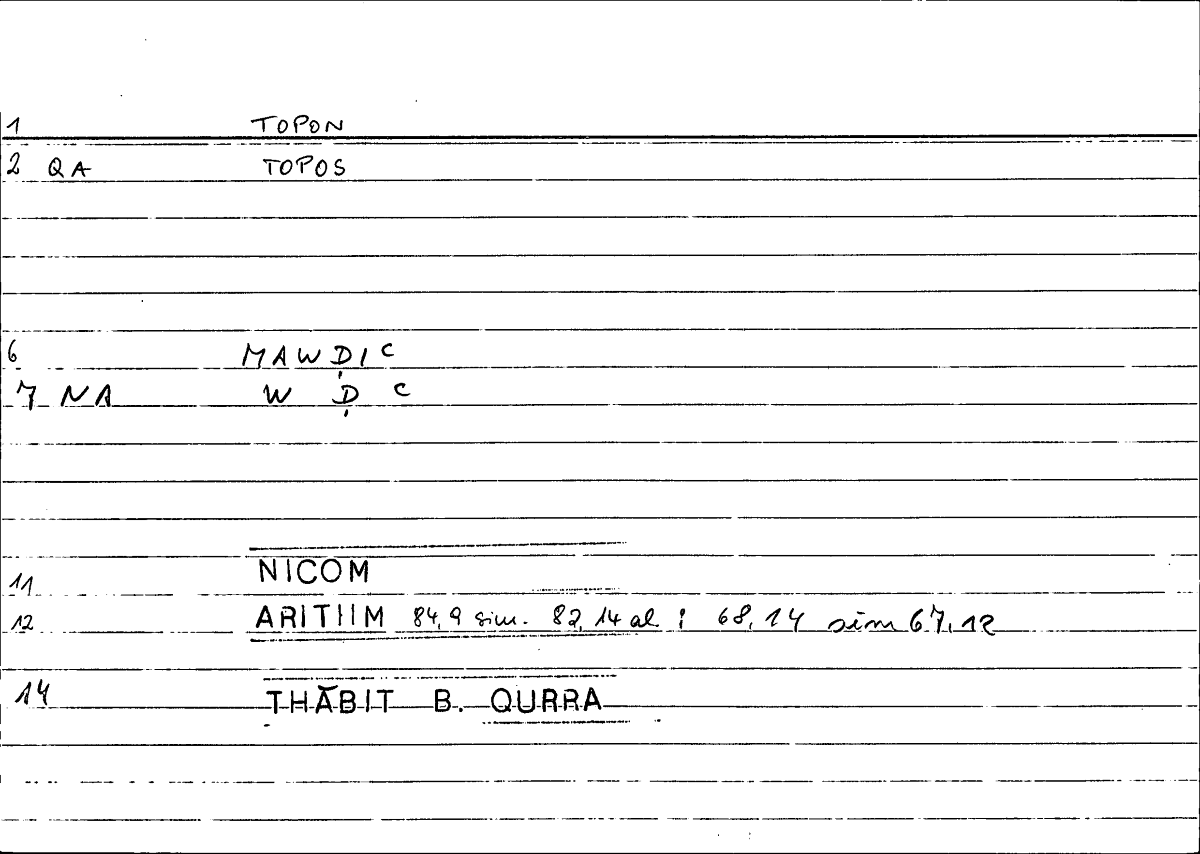 1 TOPON
2 QA TOPOS
6 MAWḌIC
7 NA W Ḍ C
11 NICOM
12 ARITHM 84,9 sim. 82,14 al. ; 68,14 sim 67,12
14 THĀBIT B. QURRA